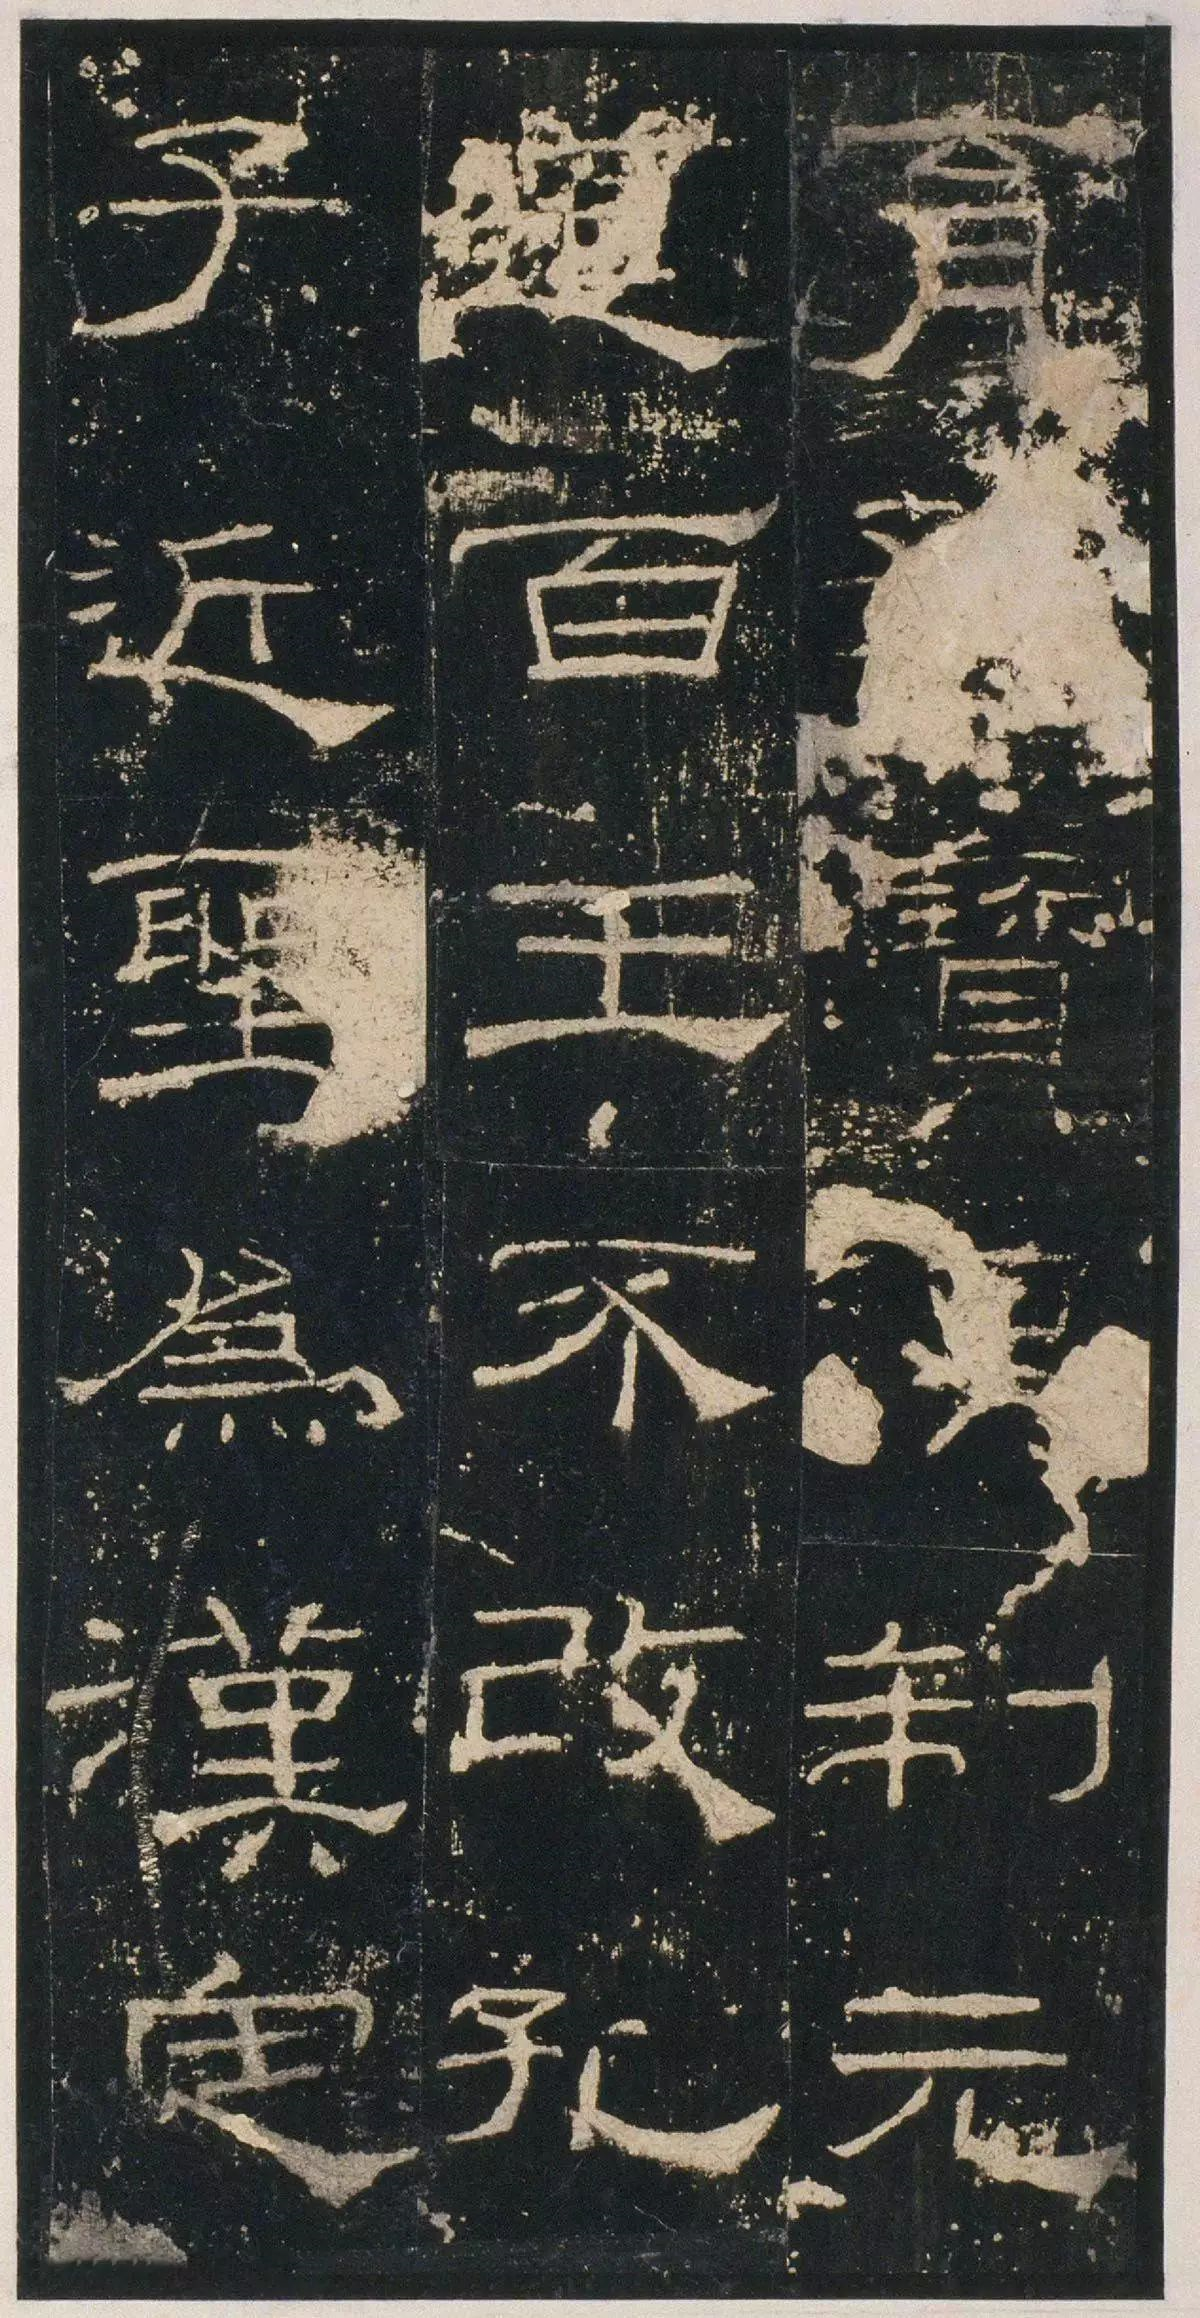 育寶制元
道百王不改孔
子近聖爲漢定